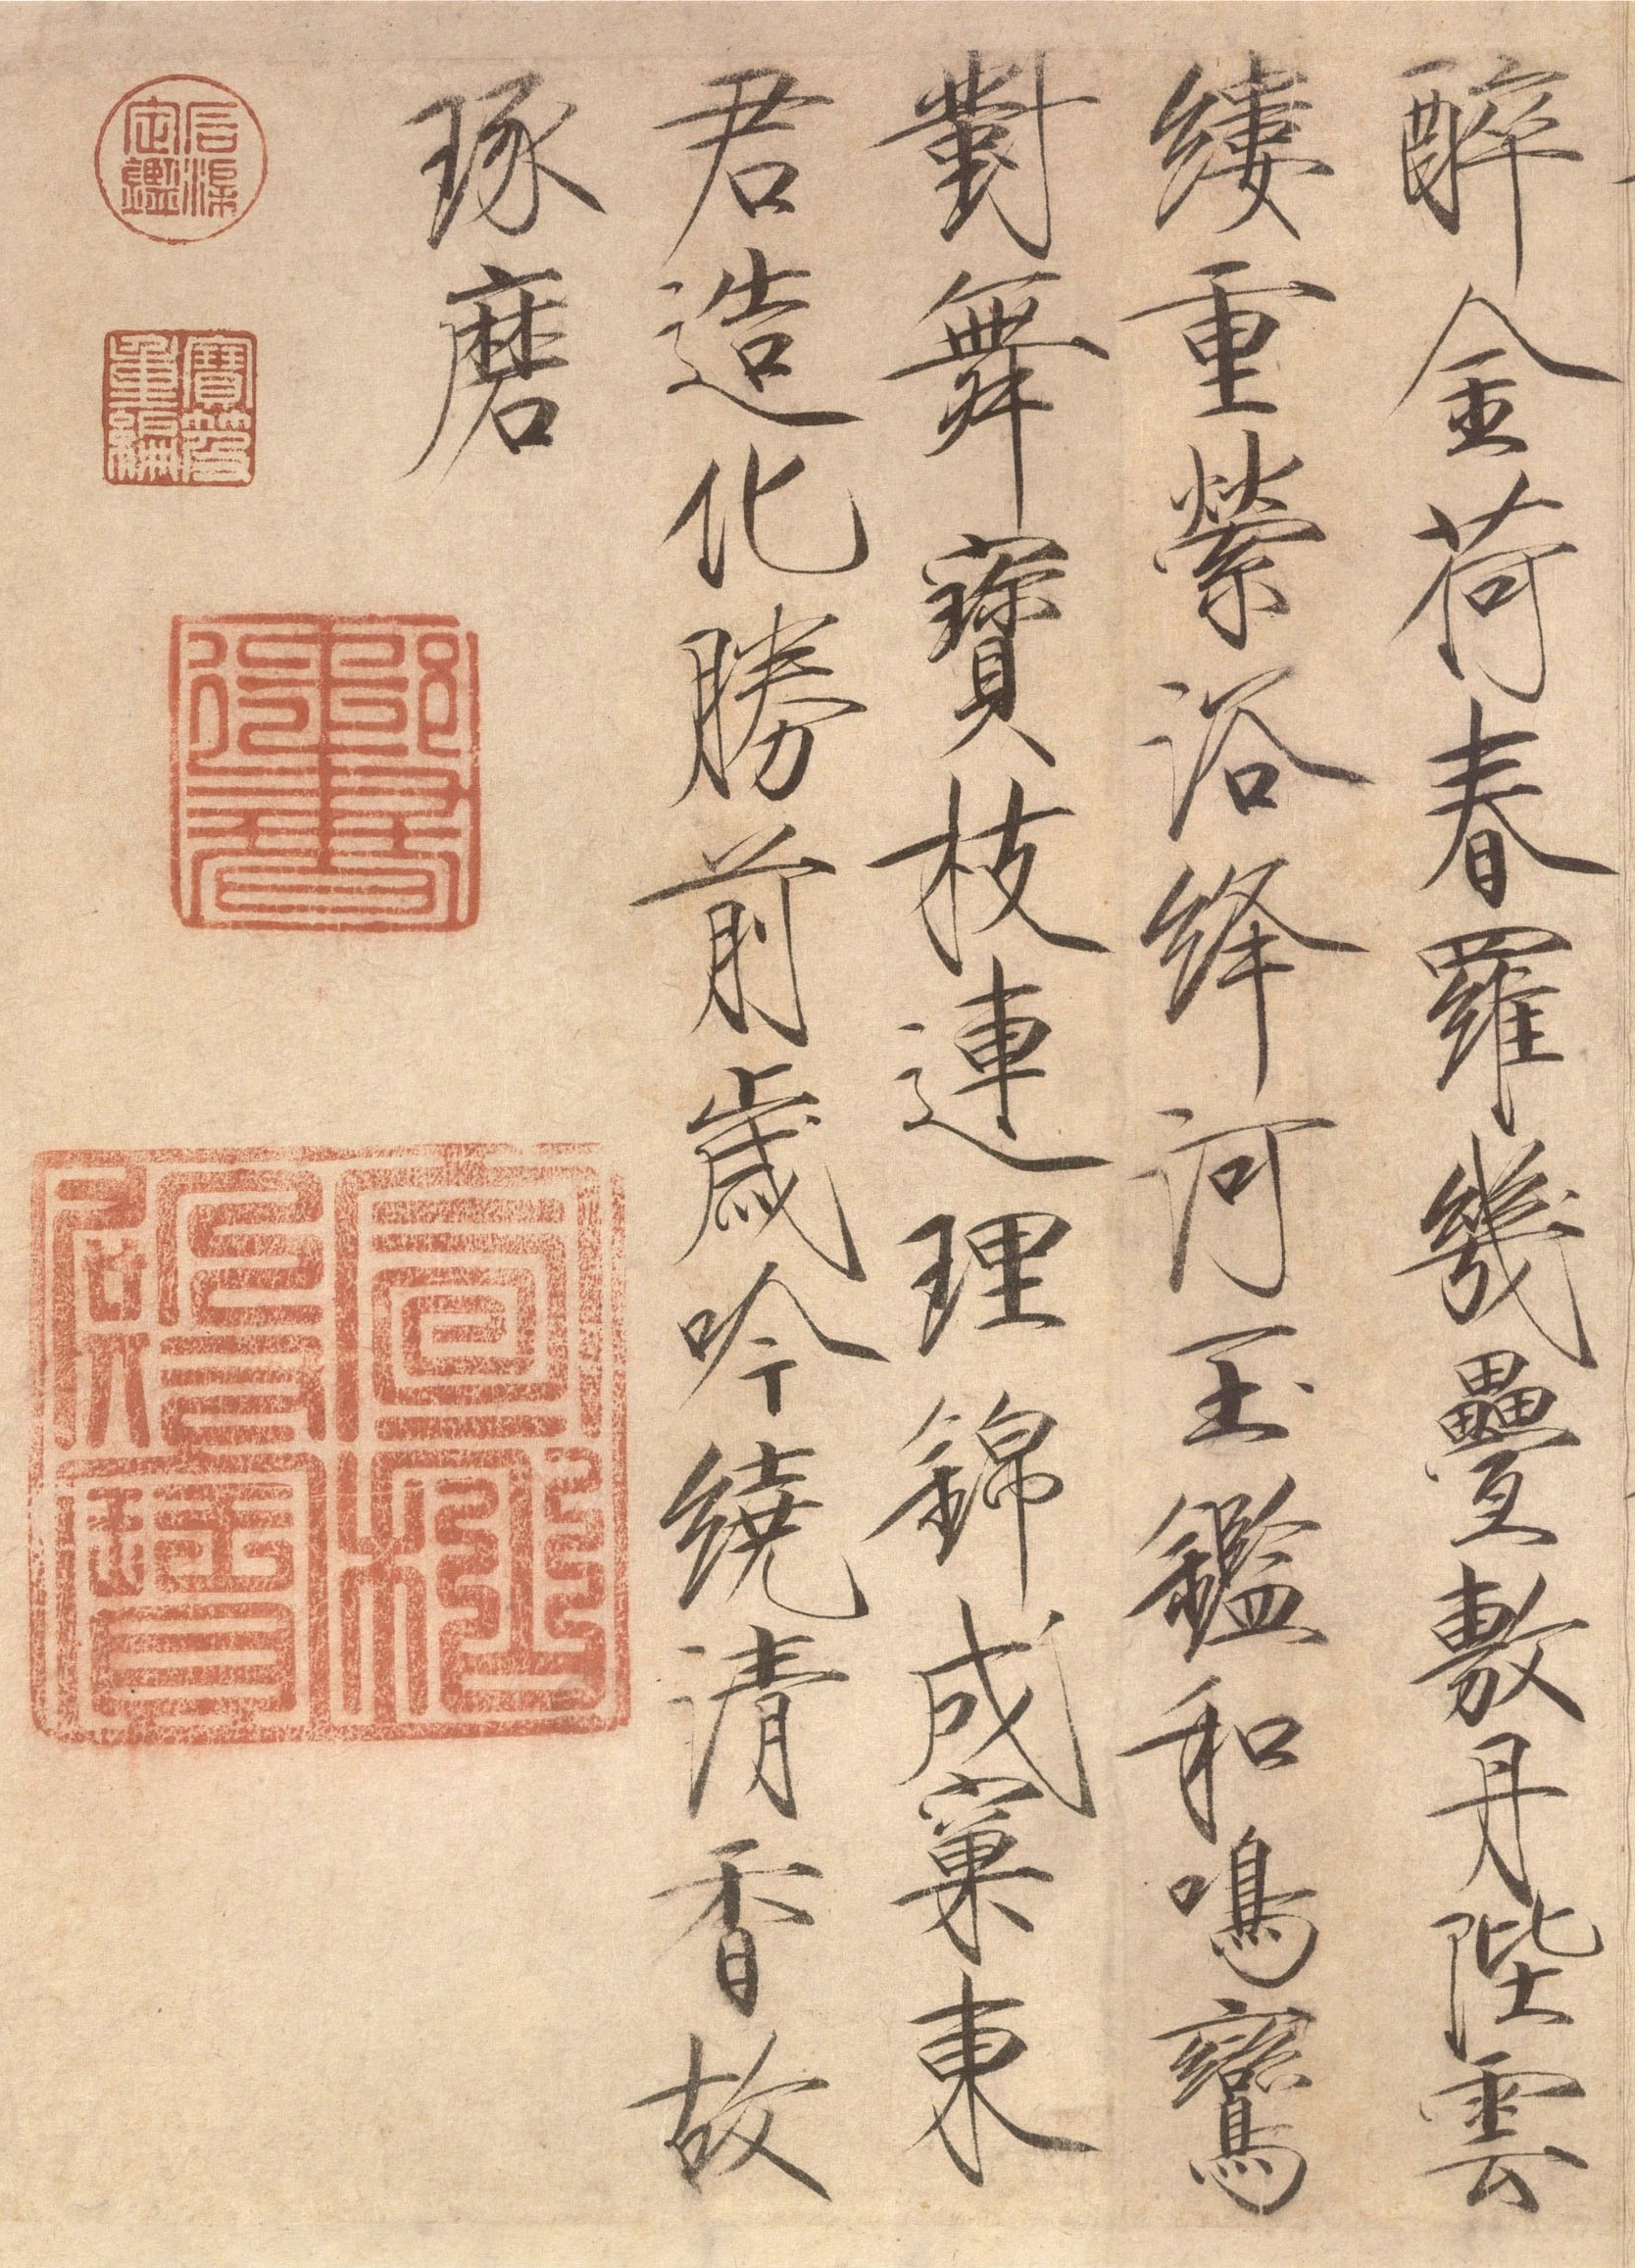 醉金荷春羅幾疊敷丹陛雲
縷重縈浴絳河玉鑑和鳴鸞
對舞寶枝連理錦成窠東
君造化勝前歲吟繞清香故
琢磨
石渠定鑑
寶笈重編
御書